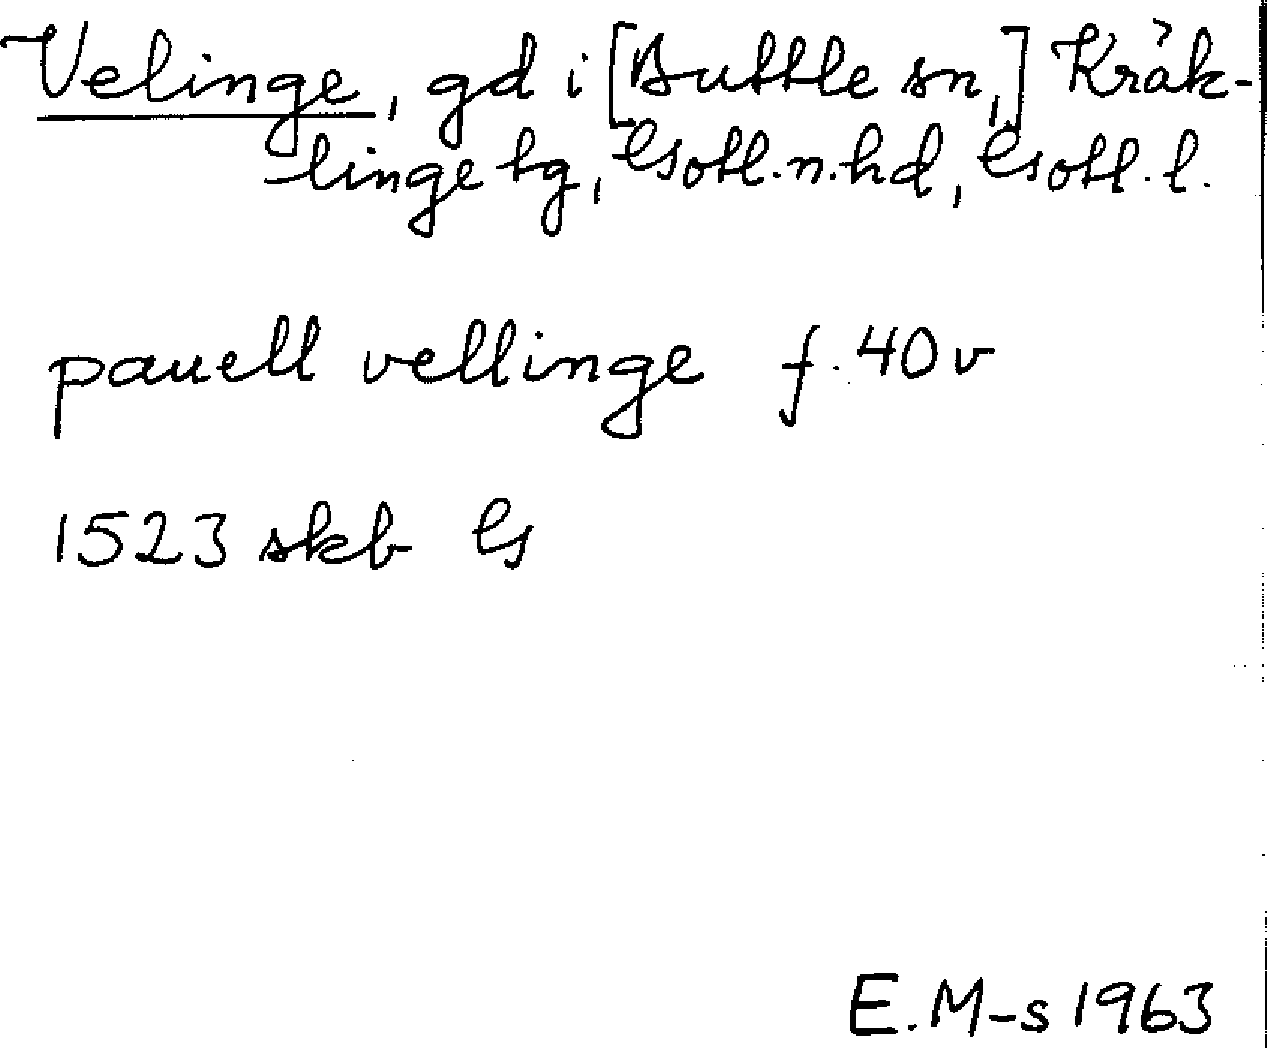 Velinge, gd i [Buttle sn,] Kräk-
linge tg, Gotl. n. hd, Gotl. l.
pauell vellinge f. 40 v
1523 skb G
E. M-s 1963